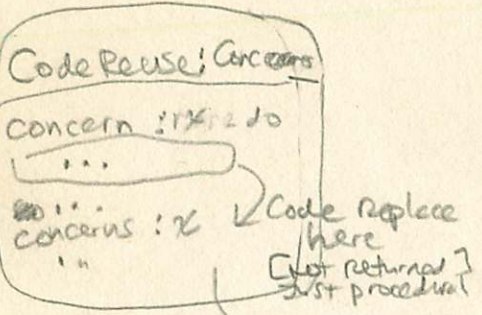 Code Reuse: Concerns
concern : do
...
concerns : x
Code Replace
here
[not returned]
Just procedural